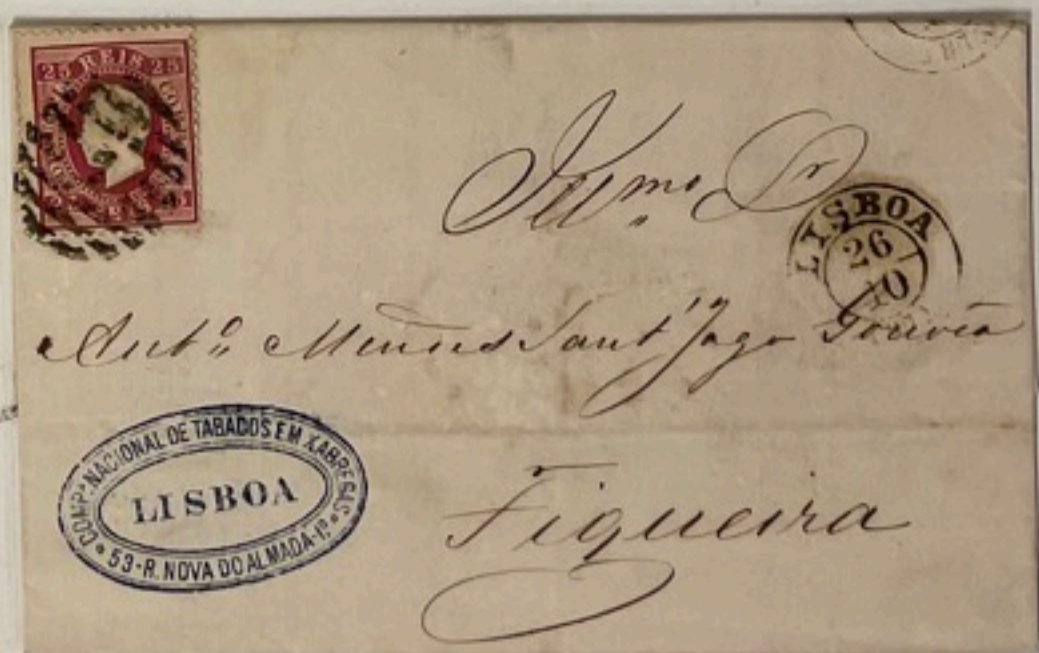 25 REIS 25
Illmo Sr
LISBOA
26
10
Anto Mendes Sant'Jago Gouvêa
COMPA NACIONAL DE TABACOS EM XABREGAS
LISBOA
53-R. NOVA DO ALMADA-1º
Figueira